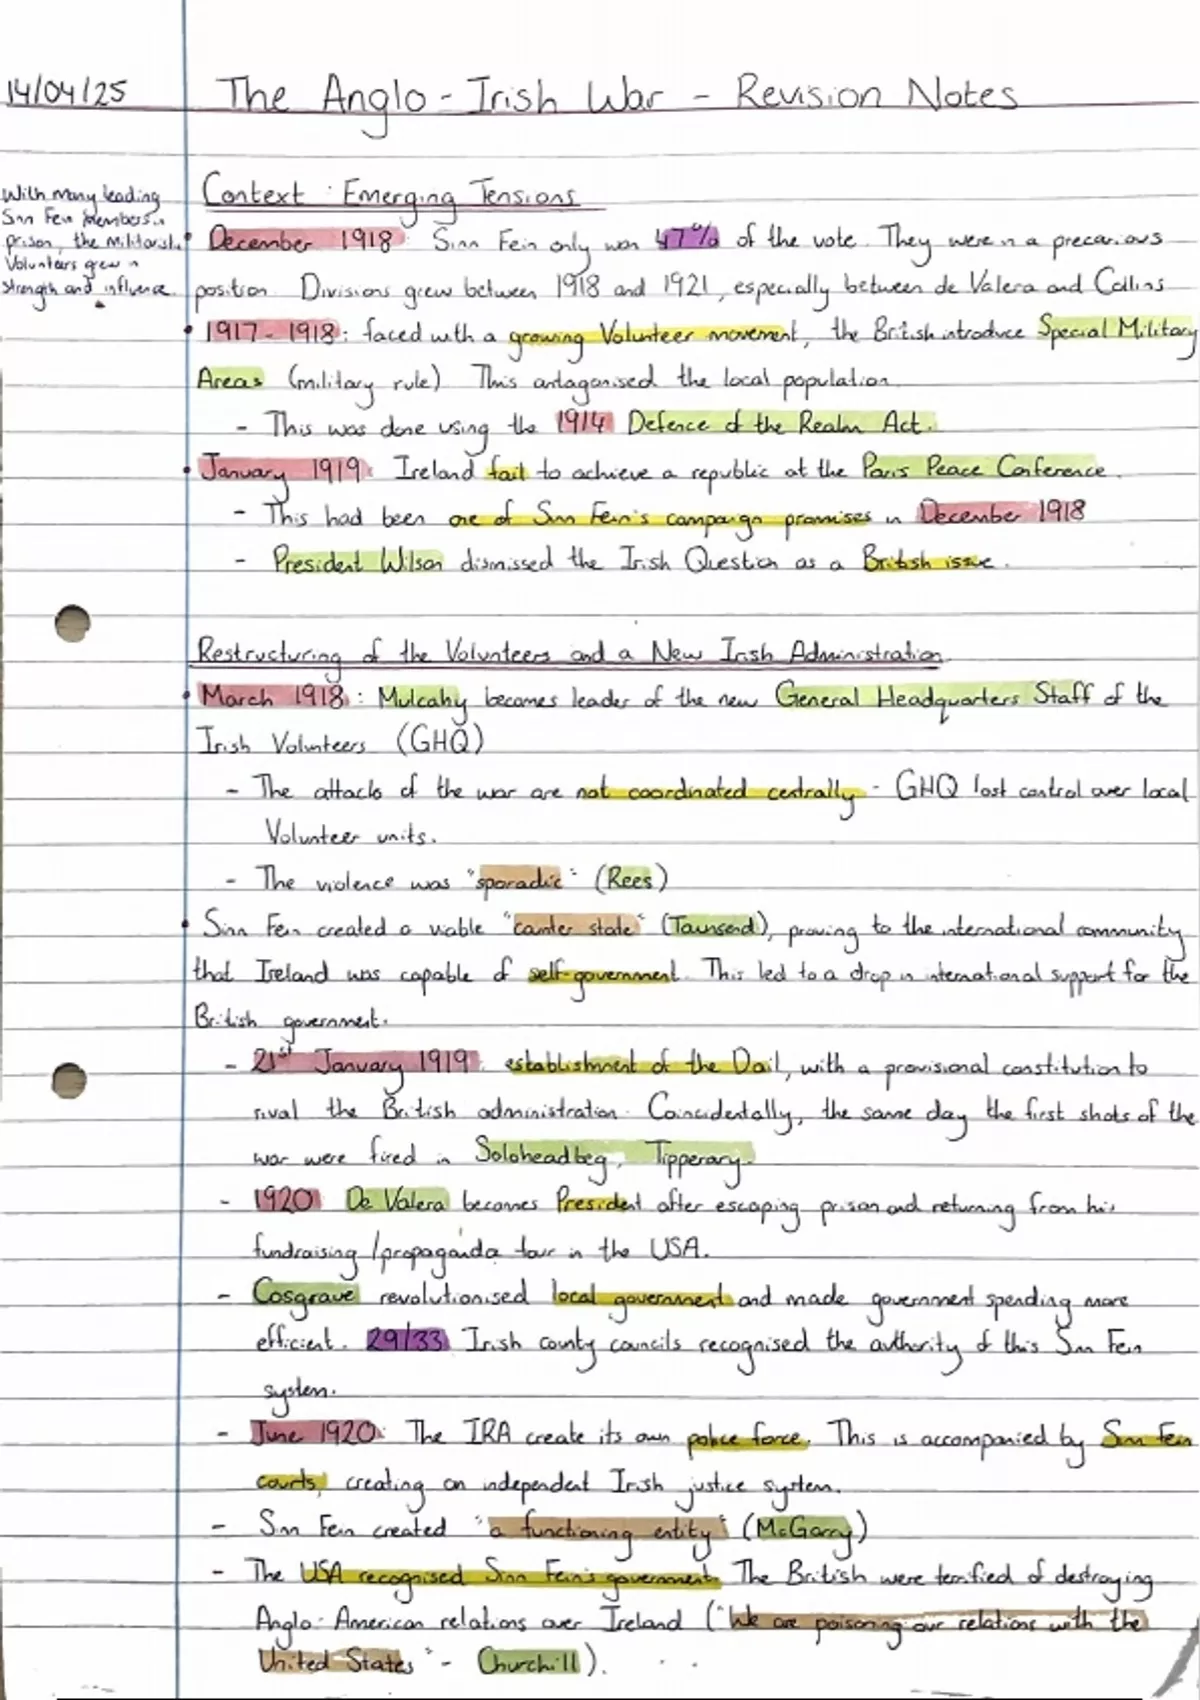 14/04/25
The Anglo-Irish War - Revision Notes
With many leading
Sinn Fein members in
prison, the militarist
Volunteers grew in
strength and influence.
Context: Emerging Tensions
December 1918: Sinn Fein only won 47% of the vote. They were in a precarious
position. Divisions grew between 1918 and 1921, especially between de Valera and Collins
1917-1918: faced with a growing Volunteer movement, the British introduce Special Military
Areas (military rule). This antagonised the local population.
- This was done using the 1914 Defence of the Realm Act.
January 1919: Ireland fail to achieve a republic at the Paris Peace Conference.
- This had been one of Sinn Fein's campaign promises in December 1918
- President Wilson dismissed the Irish Question as a British issue.
Restructuring of the Volunteers and a New Irish Administration
March 1918: Mulcahy becomes leader of the new General Headquarters Staff of the
Irish Volunteers (GHQ)
- The attacks of the war are not coordinated centrally - GHQ lost control over local
Volunteer units.
- The violence was "sporadic" (Rees)
Sinn Fein created a viable "counter state" (Townsend), proving to the international community
that Ireland was capable of self-government. This led to a drop in international support for the
British government.
- 21st January 1919: establishment of the Dail, with a provisional constitution to
rival the British administration. Coincidentally, the same day the first shots of the
war were fired in Soloheadbeg, Tipperary.
- 1920 De Valera becomes President after escaping prison and returning from his
fundraising/propaganda tour in the USA.
- Cosgrave revolutionised local government and made government spending more
efficient. 29/33 Irish county councils recognised the authority of this Sinn Fein
system.
- June 1920: The IRA create its own police force. This is accompanied by Sinn Fein
courts, creating an independent Irish justice system.
- Sinn Fein created "a functioning entity" (McGarry)
- The USA recognised Sinn Fein's government. The British were terrified of destroying
Anglo-American relations over Ireland ("We are poisoning our relations with the
United States" - Churchill).